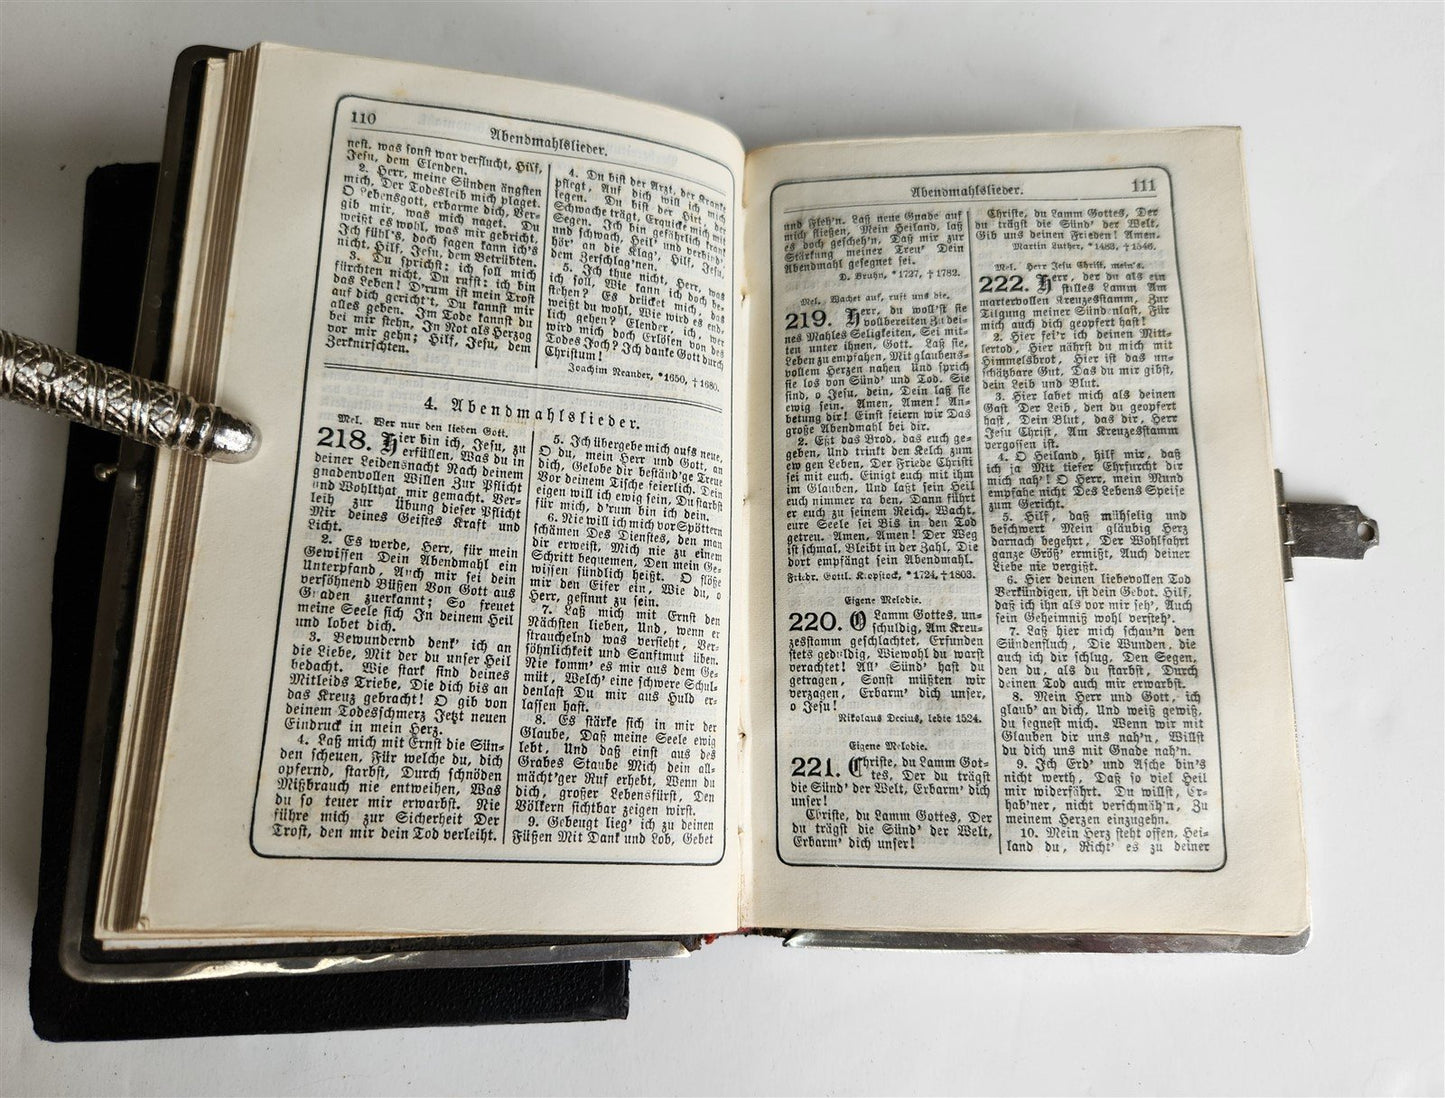 110
Abendmahlslieder.
nest, was sonst war verflucht, Hilf,
Jesu, dem Elenden.
2. Herr, meine Sünden ängsten
mich, Der Todesleib mich plaget.
O Lebensgott, erbarme dich, Ver-
gib mir, was mich naget. Du
weißt es wohl, was mir gebricht,
Ich fühl's, doch sagen kann ich's
nicht. Hilf, Jesu, dem Betrübten.
3. Du sprichst: ich soll mich
fürchten nicht, Du rufst: ich bin
das Leben! D'rum ist mein Trost
auf dich gericht't, Du kannst mir
alles geben. Im Tode kannst du
bei mir stehn, In Not als Herzog
vor mir gehn; Hilf, Jesu, dem
Zerknirschten.
4. Du bist der Arzt, der Kranke
pflegt, Auf dich will ich mich
legen. Du bist der Hirt, der
Schwache trägt, Erquicke mich mit
Segen. Ich bin gefährlich krank
und schwach, Heil' und verbind',
hör' an die Klag', Hilf, Jesu,
dem Zerschlag'nen.
5. Ich thue nicht, Herr, was
ich soll, Wie kann ich doch be-
stehen? Es drücket mich, das
weißt du wohl, Wie wird es end-
lich gehen? Elender, ich, wer
wird mich doch Erlösen von des
Todes Joch? Ich danke Gott durch
Christum!
Joachim Neander, *1650, †1680.
4. Abendmahlslieder.
Mel. Wer nur den lieben Gott.
218. Hier bin ich, Jesu, zu
erfüllen, Was du in
deiner Leidensnacht Nach deinem
gnadenvollen Willen Zur Pflicht
und Wohlthat mir gemacht. Ver-
leih zur Übung dieser Pflicht
Mir deines Geistes Kraft und
Licht.
2. Es werde, Herr, für mein
Gewissen Dein Abendmahl ein
Unterpfand, Auch mir sei dein
versöhnend Büßen Von Gott aus
Gnaden zuerkannt; So freuet
meine Seele sich In deinem Heil
und lobet dich.
3. Bewundernd denk' ich an
die Liebe, Mit der du unser Heil
bedacht. Wie stark sind deines
Mitleids Triebe, Die dich bis an
das Kreuz gebracht! O gib von
deinem Todesschmerz Jetzt neuen
Eindruck in mein Herz.
4. Laß mich mit Ernst die Sün-
den scheuen, Für welche du, dich
opfernd, starbst, Durch schnöden
Mißbrauch nie entweihen, Was
du so teuer mir erwarbst. Nie
führe mich zur Sicherheit Der
Trost, den mir dein Tod verleiht.
5. Ich übergebe mich aufs neue,
O du, mein Herr und Gott, an
dich, Gelobe dir beständ'ge Treue
Vor deinem Tische feierlich. Dein
eigen will ich ewig sein, Du starbst
für mich, d'rum bin ich dein.
6. Nie will ich mich vor Spöttern
schämen Des Dienstes, den man
dir erweist, Mich nie zu einem
Schritt bequemen, Den mein Ge-
wissen sündlich heißt. O flöße
mir den Eifer ein, Wie du, o
Herr, gesinnt zu sein.
7. Laß mich mit Ernst den
Nächsten lieben, Und, wenn er
strauchelnd was versieht, Ver-
söhnlichkeit und Sanftmut üben.
Nie komm' es mir aus dem Ge-
müt, Welch' eine schwere Schul-
denlast Du mir aus Huld er-
lassen hast.
8. Es stärke sich in mir der
Glaube, Daß meine Seele ewig
lebt, Und daß einst aus des
Grabes Staube Mich dein all-
mächt'ger Ruf erhebt, Wenn du
dich, großer Lebensfürst, Den
Völkern sichtbar zeigen wirst.
9. Gebeugt lieg' ich zu deinen
Füßen Mit Dank und Lob, Gebet
Abendmahlslieder.
111
und Fleh'n. Laß neue Gnade auf
mich fließen, Mein Heiland, laß
es doch gescheh'n, Daß mir zur
Stärkung meiner Treu' Dein
Abendmahl gesegnet sei.
D. Bruhn, *1727, †1782.
Mel. Wachet auf, ruft uns die.
219. Herr, du woll'st sie
vollbereiten Zu dei-
nes Mahles Seligkeiten, Sei mit-
ten unter ihnen, Gott. Laß sie,
Leben zu empfahen, Mit glaubens-
vollem Herzen nahen Und sprich
sie los von Sünd' und Tod. Sie
sind, o Jesu, dein, Dein laß sie
ewig sein, Amen, Amen! An-
betung dir! Einst feiern wir Das
große Abendmahl bei dir.
2. Eßt das Brod, das euch ge-
geben, Und trinkt den Kelch zum
ew gen Leben, Der Friede Christi
sei mit euch. Einigt euch mit ihm
im Glauben, Und laßt sein Heil
euch nimmer ra ben, Dann führt
er euch zu seinem Reich. Wacht,
eure Seele sei Bis in den Tod
getreu. Amen, Amen! Der Weg
ist schmal, Bleibt in der Zahl, Die
dort empfängt sein Abendmahl.
Friedr. Gottl. Klopstock, *1724, †1803.
Eigene Melodie.
220. O Lamm Gottes, un-
schuldig, Am Kreu-
zesstamm geschlachtet, Erfunden
stets geduldig, Wiewohl du warst
verachtet! All' Sünd' hast du
getragen, Sonst müßten wir
verzagen, Erbarm' dich unser,
o Jesu!
Nikolaus Decius, lebte 1524.
Eigene Melodie.
221. Christe, du Lamm Got-
tes, Der du trägst
die Sünd' der Welt, Erbarm' dich
unser!
Christe, du Lamm Gottes, Der
du trägst die Sünd' der Welt,
Erbarm' dich unser!
Christe, du Lamm Gottes, Der
du trägst die Sünd' der Welt,
Gib uns deinen Frieden! Amen.
Martin Luther, *1483, †1546.
Mel. Herr Jesu Christ, mein's.
222. Herr, der du als ein
stilles Lamm Am
martervollen Kreuzesstamm, Zur
Tilgung meiner Sündenlast, Für
mich auch dich geopfert hast!
2. Hier fei'r ich deinen Mitt-
lertod, Hier nährst du mich mit
Himmelsbrot, Hier ist das un-
schätzbare Gut, Das du mir gibst,
dein Leib und Blut.
3. Hier labet mich als deinen
Gast Der Leib, den du geopfert
hast, Dein Blut, das dir, Herr
Jesu Christ, Am Kreuzesstamm
vergossen ist.
4. O Heiland, hilf mir, daß
ich ja Mit tiefer Ehrfurcht dir
mich nah'! O Herr, mein Mund
empfahe nicht Des Lebens Speise
zum Gericht.
5. Hilf, daß mühselig und
beschwert Mein gläubig Herz
darnach begehrt, Der Wohlfahrt
ganze Größ' ermißt, Auch deiner
Liebe nie vergißt.
6. Hier deinen liebevollen Tod
Verkündigen, ist dein Gebot. Hilf,
daß ich ihn als vor mir seh', Auch
sein Geheimniß wohl versteh'.
7. Laß hier mich schau'n den
Sündenfluch, Die Wunden, die
auch ich dir schlug, Den Segen,
den du, als du starbst, Durch
deinen Tod auch mir erwarbst.
8. Mein Herr und Gott, ich
glaub' an dich, Und weiß gewiß,
du segnest mich. Wenn wir mit
Glauben dir uns nah'n, Willst
du dich uns mit Gnade nah'n.
9. Ich Erd' und Asche bin's
nicht werth, Daß so viel Heil
mir widerfährt. Du willst, Er-
hab'ner, nicht verschmäh'n, Zu
meinem Herzen einzugehn.
10. Mein Herz steht offen, Hei-
land du, Richt' es zu deiner